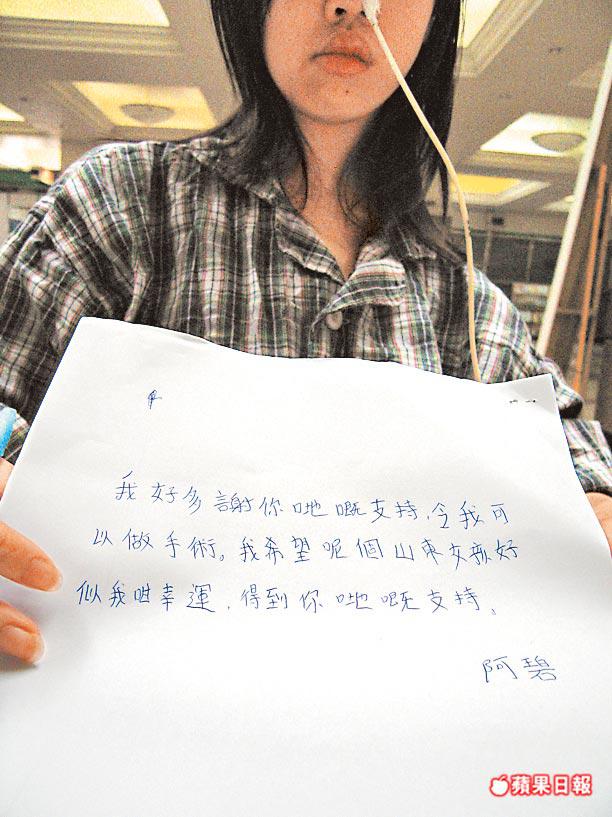 我好多謝你哋嘅支持，令我可
以做手術。我希望呢個山東女孩好
似我咁幸運，得到你哋嘅支持。
阿碧
蘋果日報